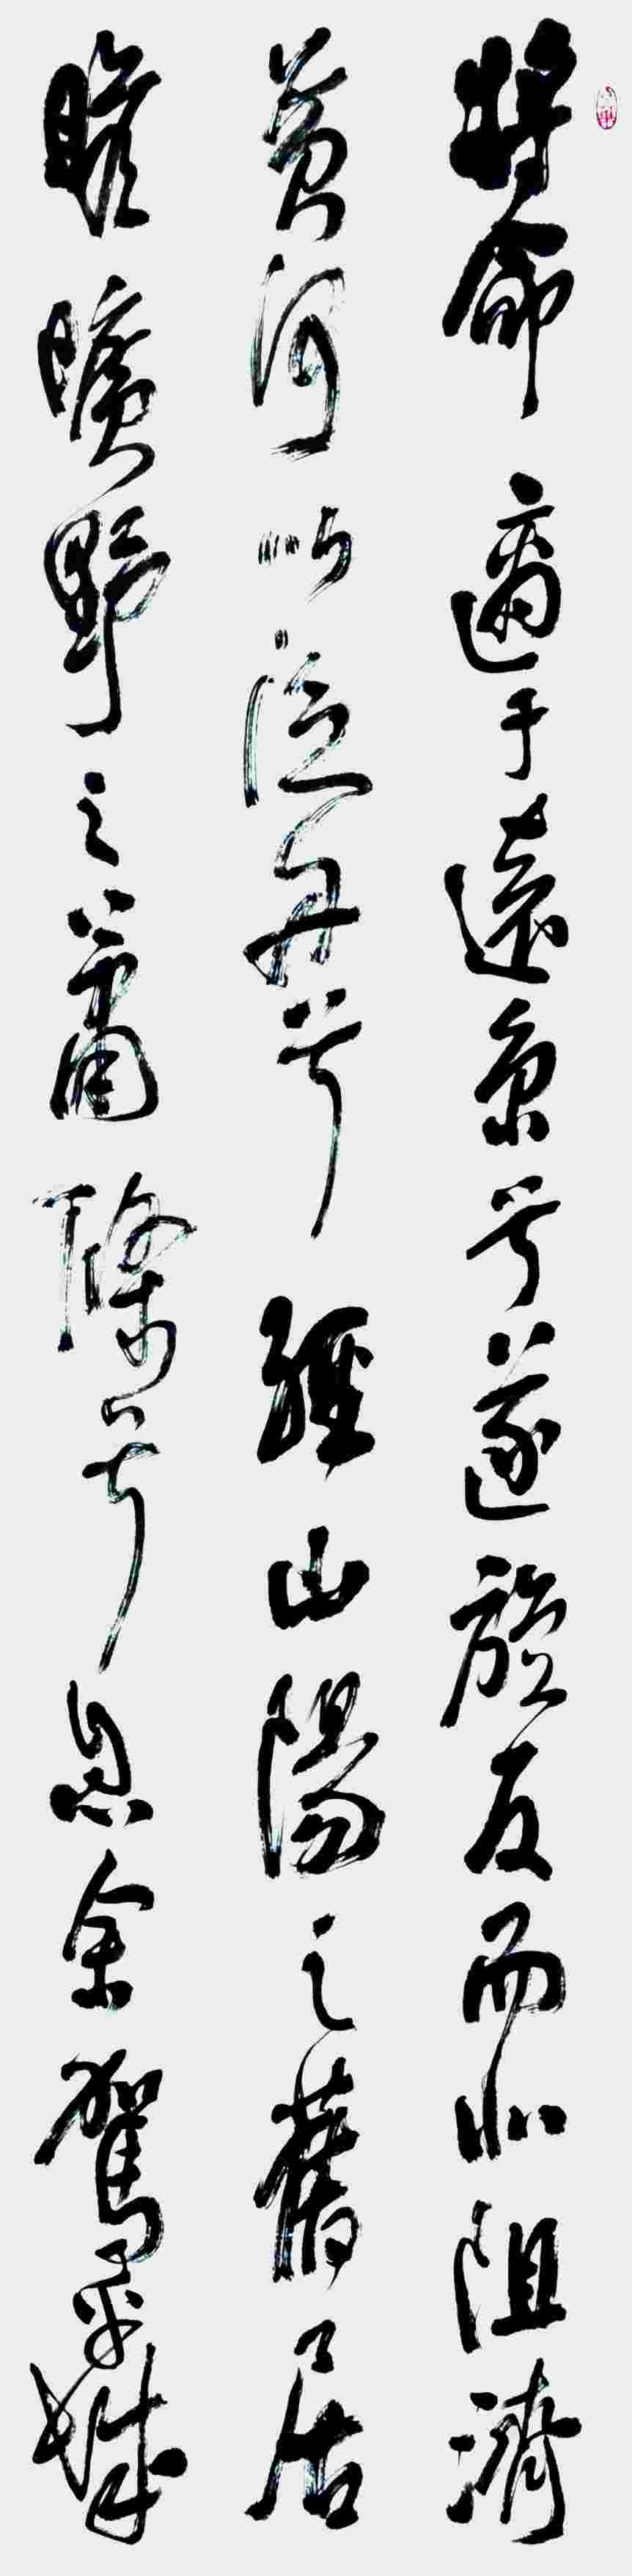 將命適于遠京兮遂旋反而北徂濟
黃河以泛舟兮經山陽之舊居
瞻曠野之蕭條兮息余駕乎城